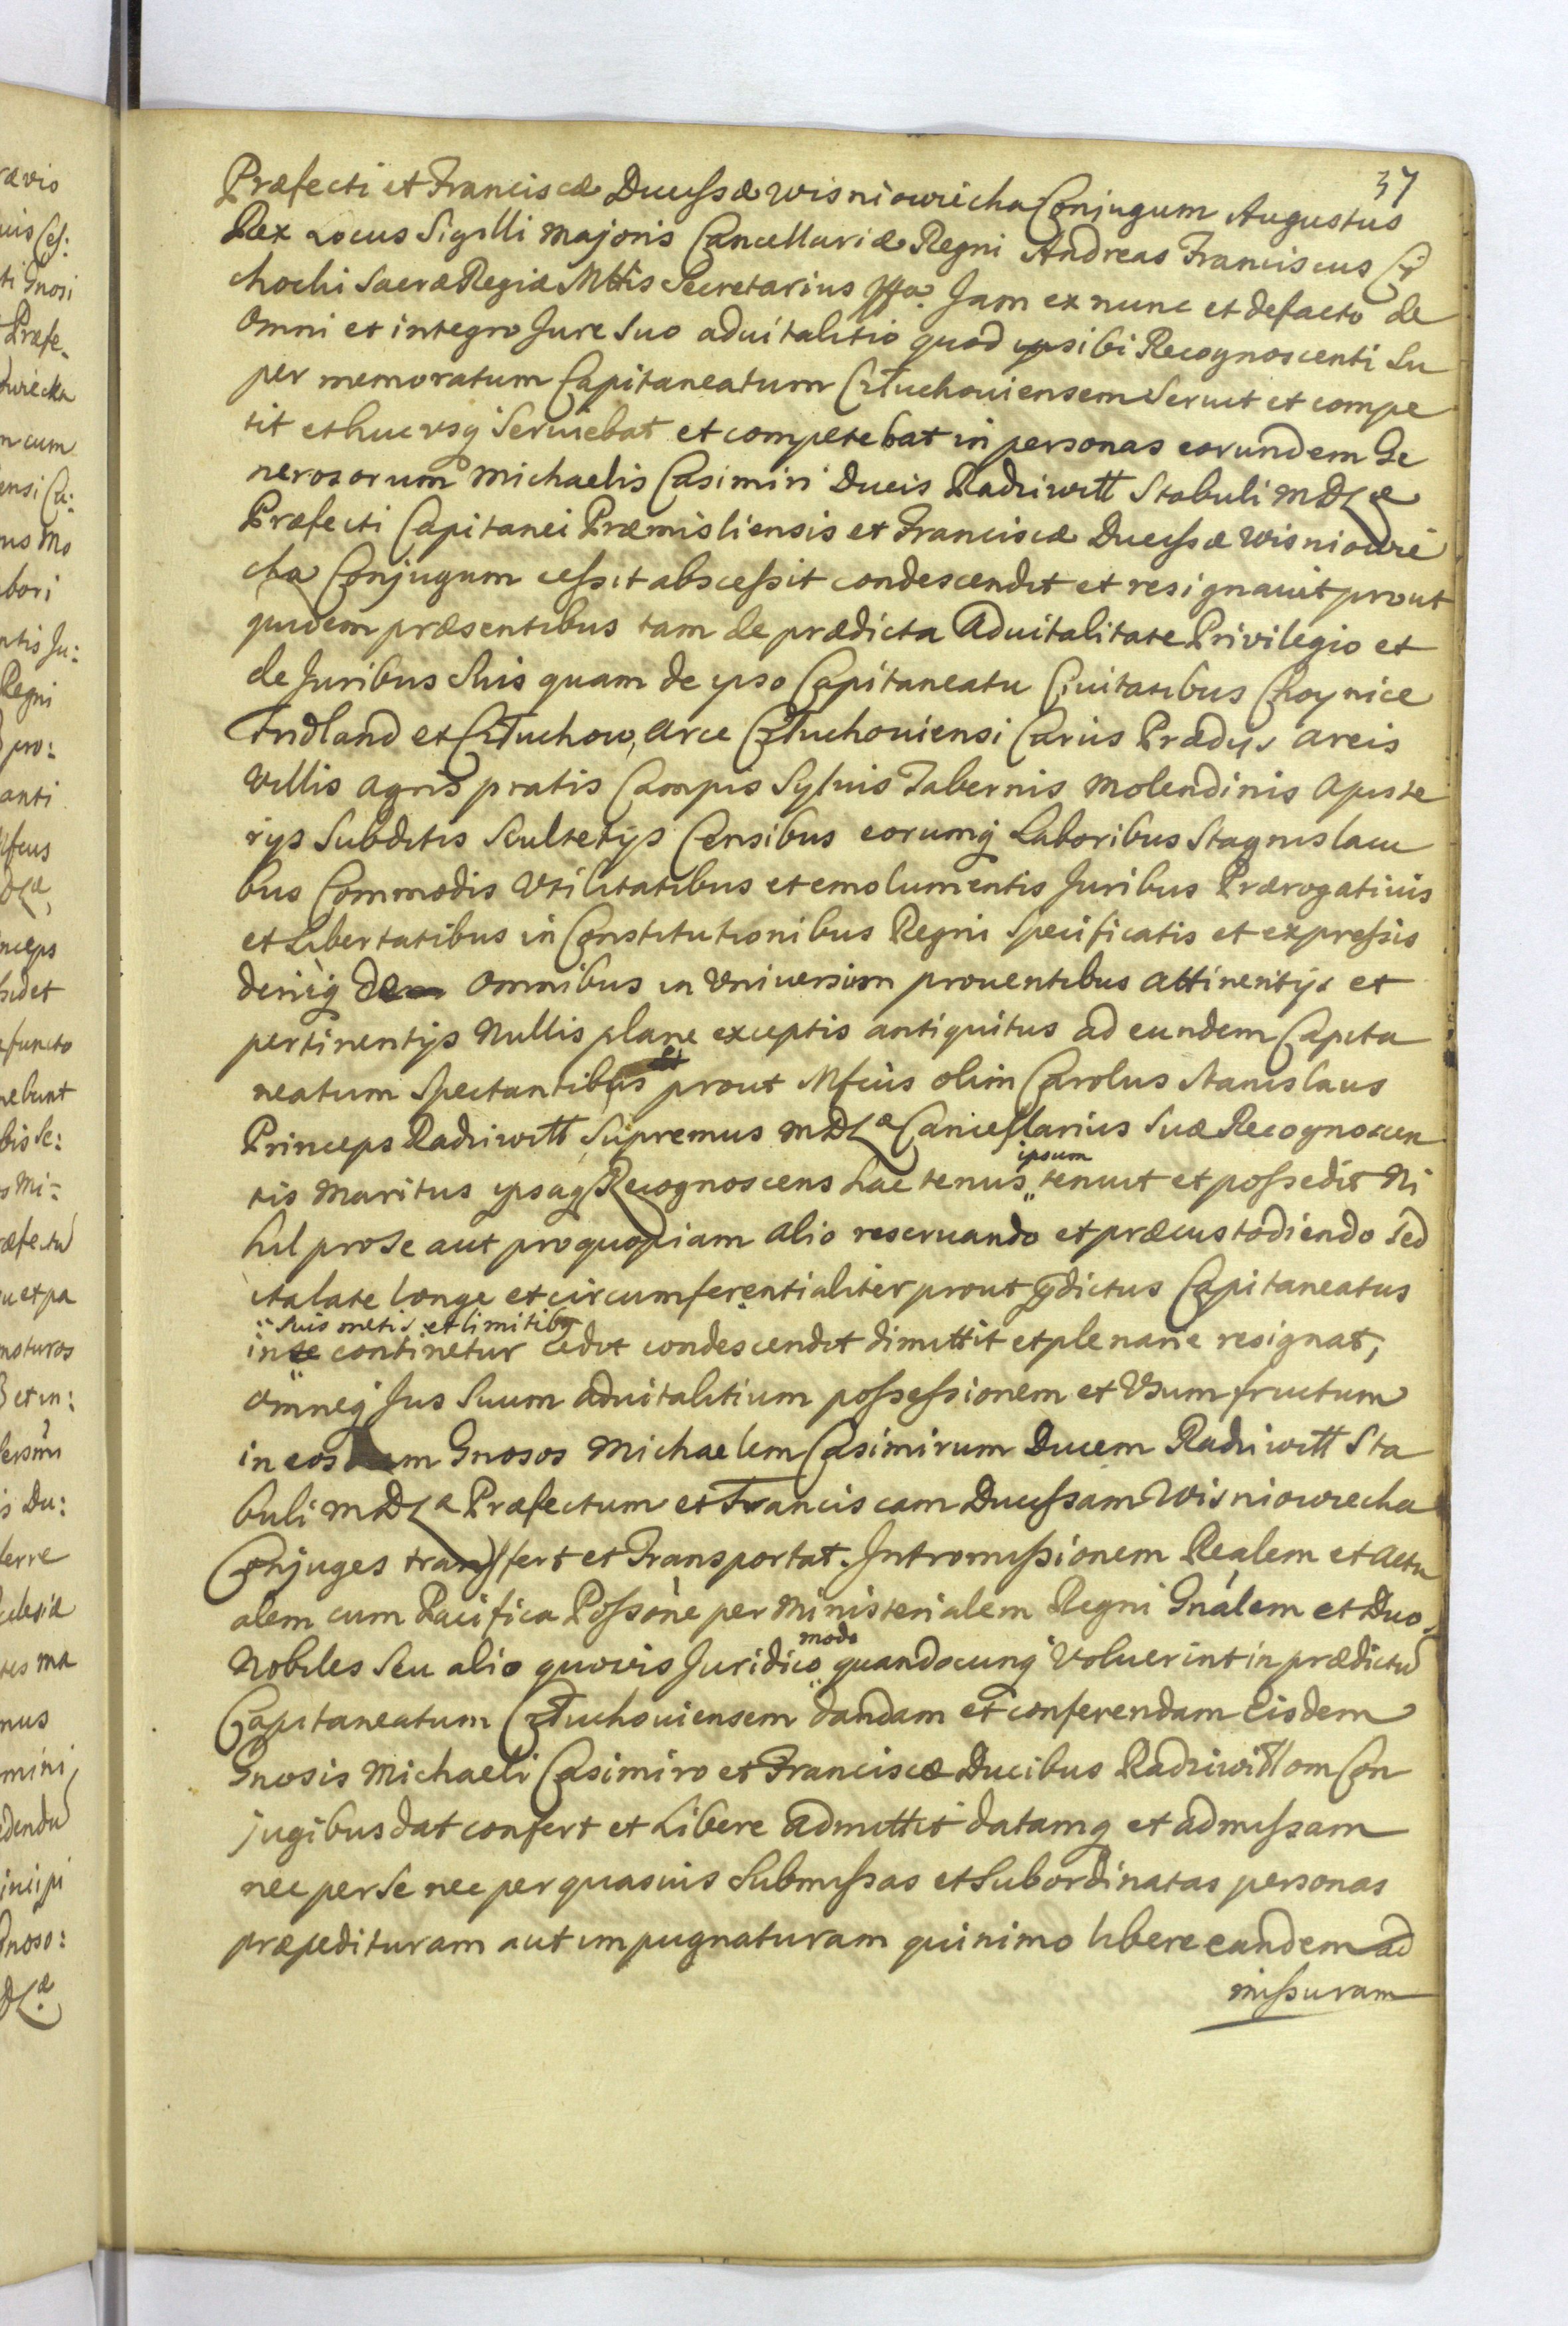 37
Præfecti et Franciscæ Ducissæ Wisniowiecka Conjugum Augustus
Rex Locus Sigilli Majoris Cancellariæ Regni Andreas Franciscus Ci
chocki Sacræ Regiæ Mttis Secretarius Jam ex nunc et defacto de
omni et integro Jure Suo aduitalitio quod sibi Recognoscenti Su
per memoratum Capitaneatum Człuchouiensem Seruit et compe
tit et hucusq Seruiebat et competebat in personas eorundem Ge
nerosorum Michaelis Casimiri Ducis Radziwiłł Stabuli MDLæ
Præfecti Capitanei Præmisliensis et Franciscæ Ducissæ Wisniowie
cka Conjugum cessit abscessit condescendit et resignauit prout
quidem præsentibus tam de prædicta Aduitalitate Privilegio et
de Juribus Suis quam de ipso Capitaneatu Ciuitatibus Choynice
Fridland et Człuchow, Arce Człuchouiensi Curiis Prædijs areis
Villis Agris pratis Campis Syluis Tabernis Molendinis Apiste
rijs Subditis Scultetijs Censibus eorumq Laboribus Stagnis lacu
bus Commodis Vtilitatibus et emolumentis Juribus Prærogatiuis
et Libertatibus in Constitutionibus Regni Specificatis et expressis
deniq de omnibus in Vniuersum prouentibus attinentijs et
pertinentijs Nullis plane exceptis antiquitus ad eundem Capita
neatum Spectantibus prout Mfcus olim Carolus Stanislaus
Princeps Radziwiłł Supremus MDLæ Cancellarius Suæ Recognoscen
tis Maritus ipsaq Recognoscens hactenus ipsum tenuit et possedit Ni
hil pro Se aut pro quopiam alio reseruando et præcustodiendo Sed
ita late longe et circumferentialiter prout prædictus Capitaneatus
in suis metis et limitibq continetur Cedit condescendit dimittit et plenarie resignat,
omneq Jus Suum aduitalitium possessionem et Vsum fructum
in eosdem Gnosos Michaelem Casimirum Ducem Radziwiłł Sta
buli MDLæ Præfectum et Franciscam Ducissam Wisniowiecka
Conjuges transfert et Transportat. Intromissionem Realem et Actu
alem cum Pacifica Possone per Ministerialem Regni Gnalem et Duos
Nobiles Seu alio quovis Juridico modo quandocunq Voluerint in prædictũ
Capitaneatum Człuchouiensem dandam et conferendam Eisdem
Gnosis Michaeli Casimiro et Franciscæ Ducibus Radziwiłłom Con
jugibus dat confert et Libere admittit datamq et admissam
nec per Se nec per quasuis Submissas et Subordinatas personas
præpedituram aut impugnaturam quinimo libere eandem ad
missuram